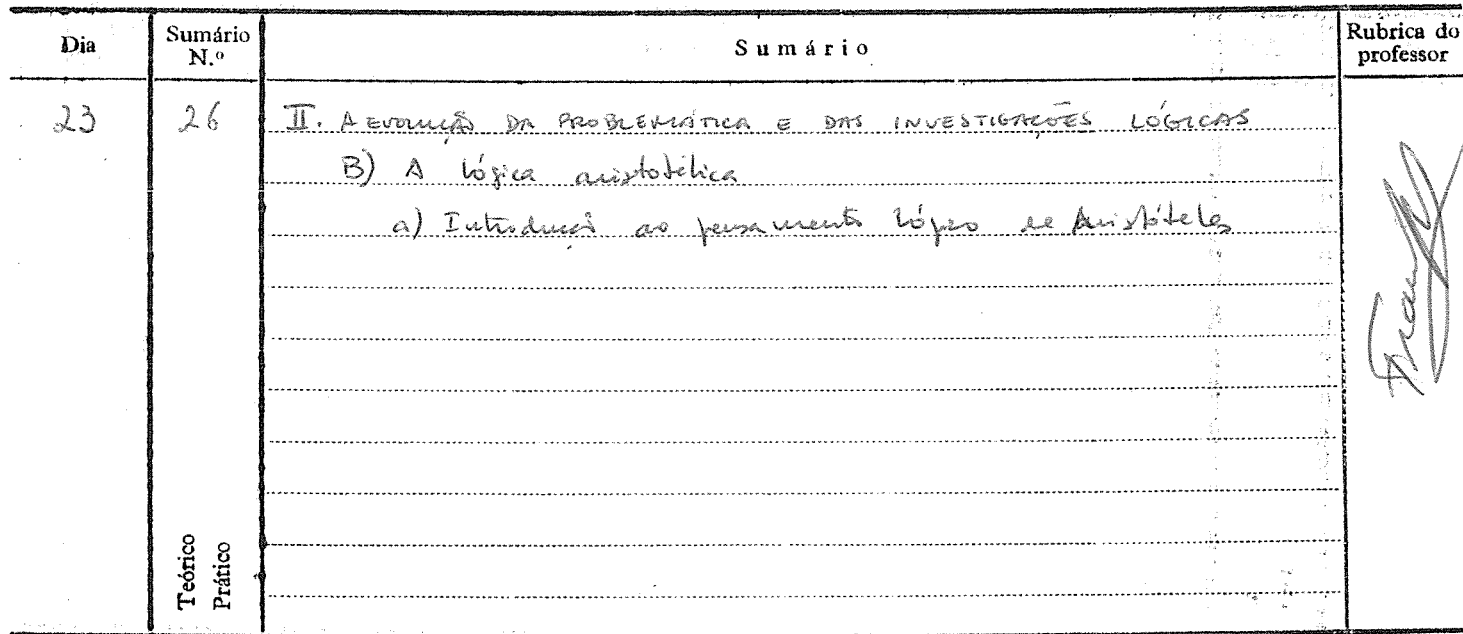 Dia
Sumário N.º
Sumário
Rubrica do professor
23
26
II. A EVOLUÇÃO DA PROBLEMÁTICA E DAS INVESTIGAÇÕES LÓGICAS
B) A lógica aristotélica
a) Introdução ao pensamento lógico de Aristóteles
Teórico
Prático